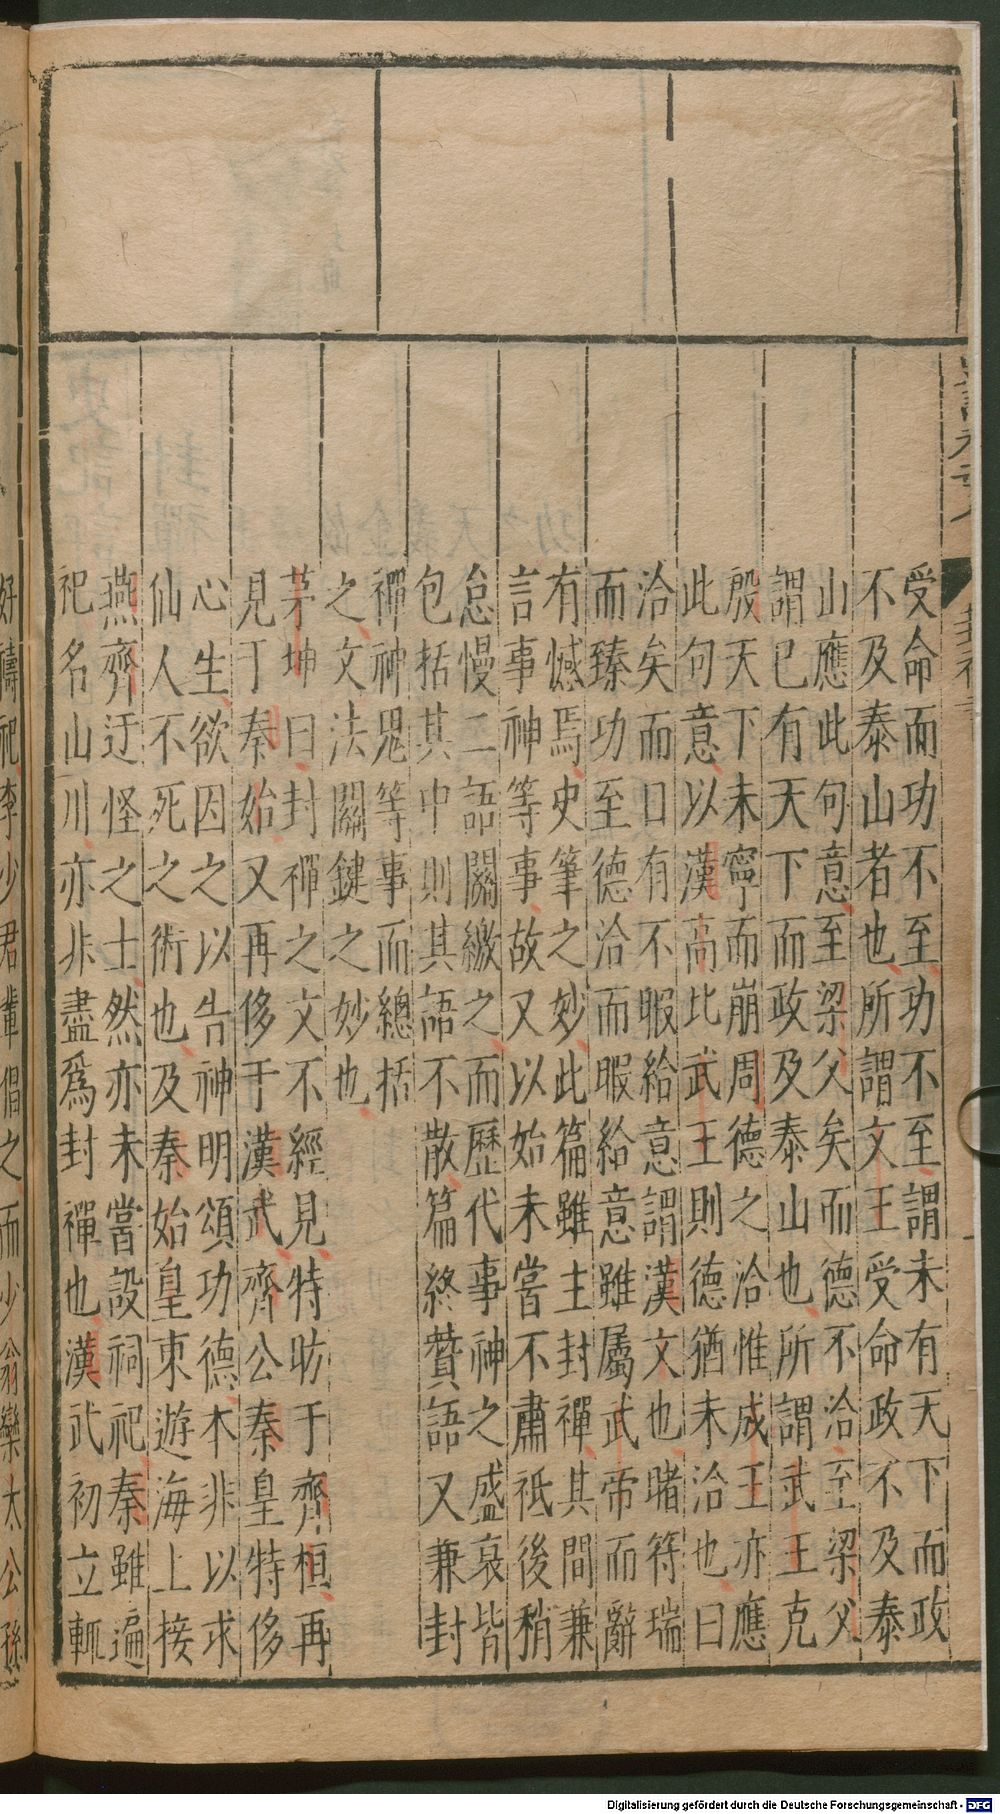 受命而功不至功不至謂未有天下而政
不及泰山者也所謂文王受命政不及泰
山應此句意至梁父矣而德不洽至梁父
謂已有天下而政及泰山也所謂武王克
殷天下未寧而崩周德之洽惟成王亦應
此句意以漢高比武王則德猶未洽也曰
洽矣而日有不暇給意謂漢文也睹符瑞
而臻功至德洽而暇給意雖屬武帝而辭
有憾焉史筆之妙此篇雖主封禪其間兼
言事神等事故又以始未嘗不肅祗後稍
怠慢二語關繳之而歷代事神之盛衰皆
包括其中則其語不散篇終贊語又兼封
禪神鬼等事而總括
之文法關鍵之妙也
茅坤曰封禪之文不經見特昉于齊桓再
見于秦始又再侈于漢武齊公秦皇特侈
心生欲因之以告神明頌功德本非以求
仙人不死之術也及秦始皇東遊海上接
燕齊迂怪之士然亦未嘗設祠祀秦雖遍
祀名山川亦非盡爲封禪也漢武初立輒
好禱祀李少君輩倡之而少翁欒大公孫
Digitalisierung gefördert durch die Deutsche Forschungsgemeinschaft - DFG